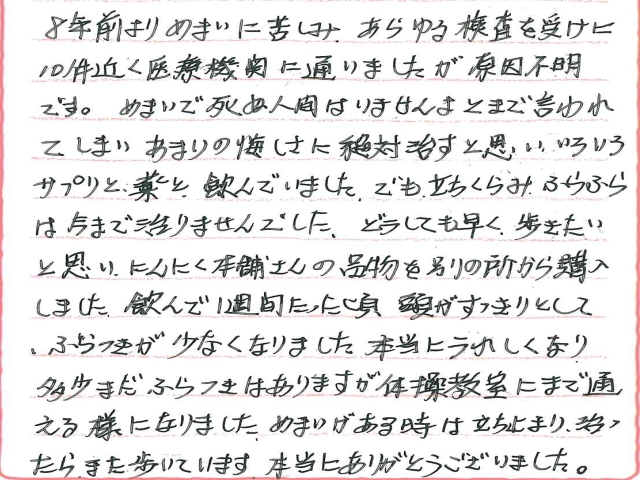 8年前よりめまいに苦しみ、あらゆる検査を受けに
10件近く医療機関に通いましたが原因不明
です。 めまいで死ぬ人間はいませんよとまで言われ
てしまい あまりの悔しさに絶対治すと思い、いろいろ
サプリと、薬と、飲んでいました。でも、立ちくらみ、ふらふら
は今まで治りませんでした。 どうしても早く、歩きたい
と思い、にんにく本舗さんの品物を別の所から購入
しました。飲んで1週間たった頃 頭がすっきりとして
、ふらつきが少なくなりました。本当にうれしくなり
多少まだふらつきはありますが体操教室にまで通
える様になりました。めまいがある時は立ち止まり、治っ
たら、また歩いています。本当にありがとうございました。